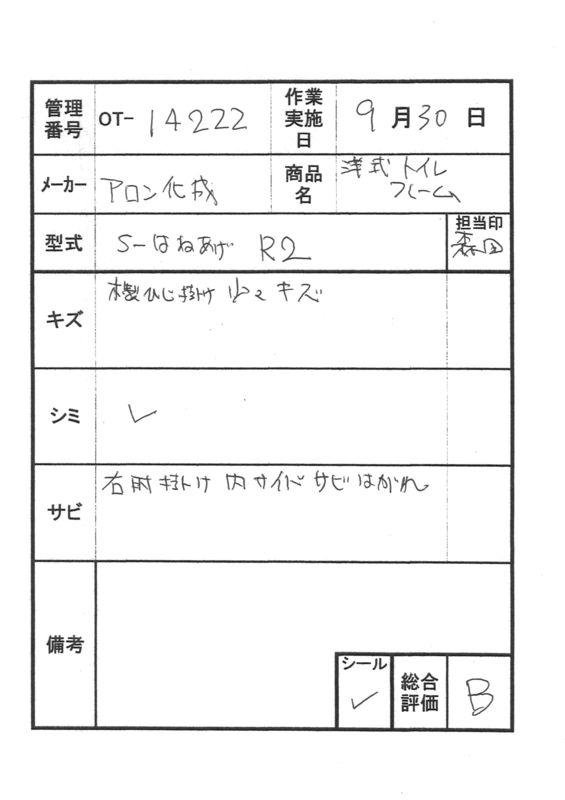 管理番号 OT- 14222 作業実施日 9月30日
メーカー アロン化成 商品名 洋式トイレ
フレーム
型式 S-はねあげ R2 担当印
森田
キズ 木製ひじ掛け 少々キズ
シミ ✓
サビ 右肘掛け 内サイド サビはがれ
備考
シール ✓ 総合評価 B